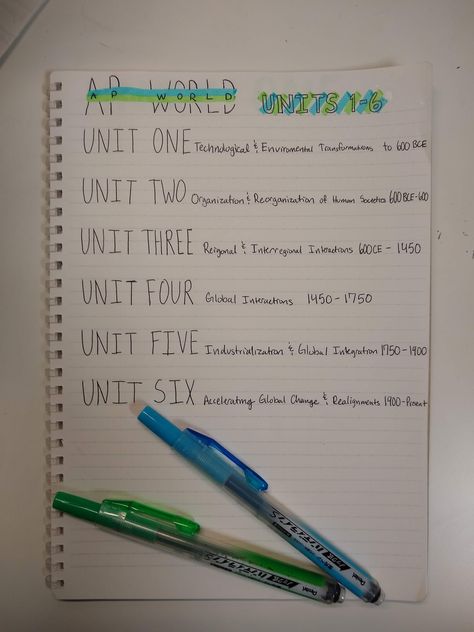 AP WORLD UNITS 1-6
AP WORLD
UNIT ONE Technological & Enviromental Transformations to 600 BCE
UNIT TWO Organization & Reorganization of Human Societies 600 BCE-600
UNIT THREE Reigonal & Interregional Interactions 600 CE - 1450
UNIT FOUR Global Interactions 1450 - 1750
UNIT FIVE Industrialization & Global Integration 1750-1900
UNIT SIX Accelerating Global Change & Realignments 1900-Present
Pentel
Pentel